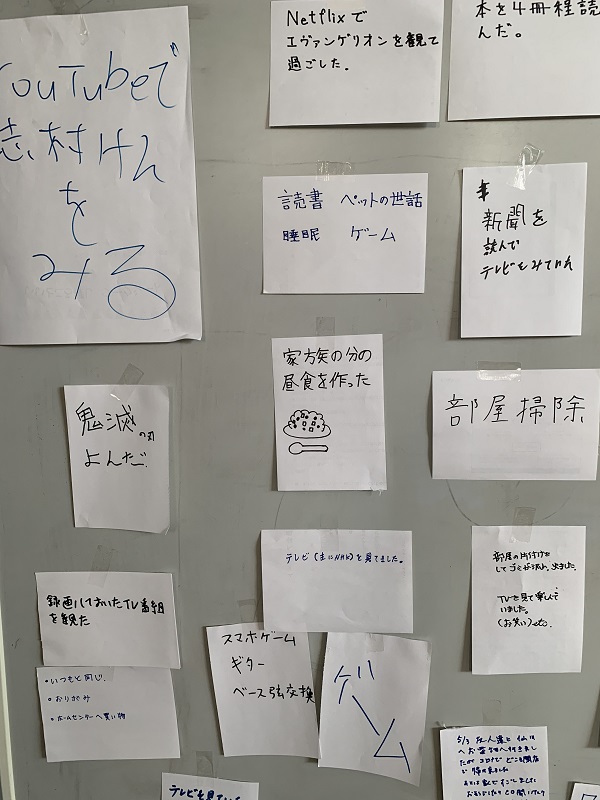 YouTubeで
志村けん
を
みる
Netflixで
エヴァンゲリオンを観て
過ごした.
本を4冊程読
んだ。
読書 ペットの世話
睡眠 ゲーム
新聞を
読んで
テレビをみていた
家族の分の
昼食を作った
部屋掃除
鬼滅の刃
よんだ.
テレビ(主にNHK)を見てました。
部屋の片付けを
して
TVを見て楽しんで
いました。
(お笑い)etc.
録画しておいたTV番組
を観た
・いつもと同じ.
・おりがみ
・ホームセンターへ買い物
スマホゲーム
ギター
ベース弦交換
ゲーム
5/3 友人達と仙山
テレビを見てい